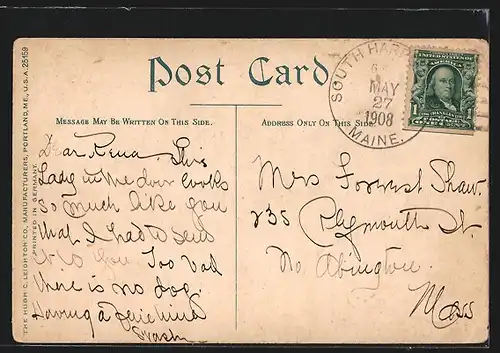 THE HUGH C. LEIGHTON CO., MANUFACTURERS, PORTLAND, ME., U.S.A. 25159
PRINTED IN GERMANY.
Post Card
MESSAGE MAY BE WRITTEN ON THIS SIDE.
ADDRESS ONLY ON THIS SIDE.
SOUTH HARP
MAY
27
1908
MAINE.
UNITED STATES OF AMERICA
1
Dear Rena. This
Lady in the door looks
so much like you
that I had to send
it to you. Too bad
there is no dog.
Having a fine time
Mrs Forrest Shaw.
235 Plymouth St.
No. Abington.
Mass